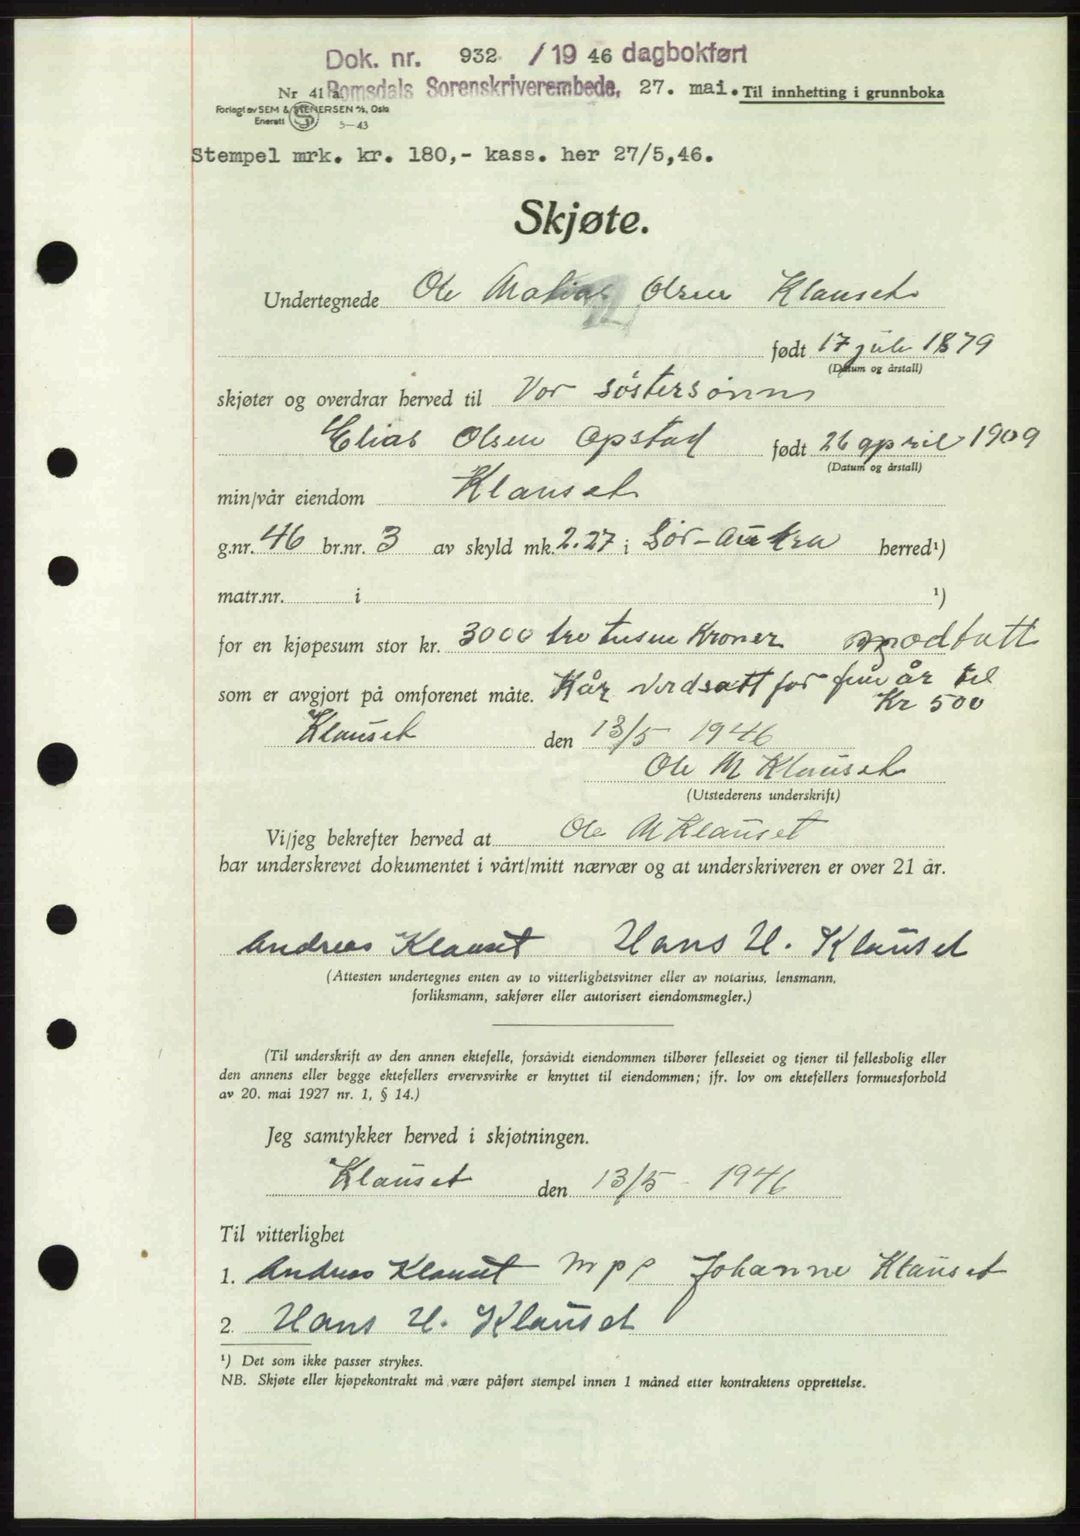 Dok. nr. 932 /19 46 dagbokført
Nr 41a Romsdals Sorenskriverembede, 27. mai. Til innhetting i grunnboka
Forlagt av SEM & STENERSEN A/S, Oslo
Enerett S 5-43
Stempel mrk. kr. 180,- kass. her 27/5,46.
Skjøte.
Undertegnede Ole Matias Olsen Klauset
født 17 juli 1879
(Datum og årstall)
skjøter og overdrar herved til Vor søstersønn
Elias Olsen Opstad født 26 april 1909
(Datum og årstall)
min/vår eiendom Klauset
g.nr. 46 br.nr. 3 av skyld mk. 2.27 i Sør-Aukra herred¹)
matr.nr. i ¹)
for en kjøpesum stor kr. 3000 tre tusen Kroner
som er avgjort på omforenet måte. Kår verdsatt for fem år til
Kr 500
Klauset den 13/5 1946
Ole M Klauset
(Utstederens underskrift)
Vi/jeg bekrefter herved at Ole M Klauset
har underskrevet dokumentet i vårt/mitt nærvær og at underskriveren er over 21 år.
Andreas Klauset Hans H. Klauset
(Attesten undertegnes enten av to vitterlighetsvitner eller av notarius, lensmann,
forliksmann, sakfører eller autorisert eiendomsmegler.)
(Til underskrift av den annen ektefelle, forsåvidt eiendommen tilhører felleseiet og tjener til fellesbolig eller
den annens eller begge ektefellers ervervsvirke er knyttet til eiendommen; jfr. lov om ektefellers formuesforhold
av 20. mai 1927 nr. 1, § 14.)
Jeg samtykker herved i skjøtningen.
Klauset den 13/5 - 1946
Til vitterlighet
1. Andreas Klauset m p p Johanne Klauset
2. Hans H. Klauset
¹) Det som ikke passer strykes.
NB. Skjøte eller kjøpekontrakt må være påført stempel innen 1 måned etter kontraktens opprettelse.